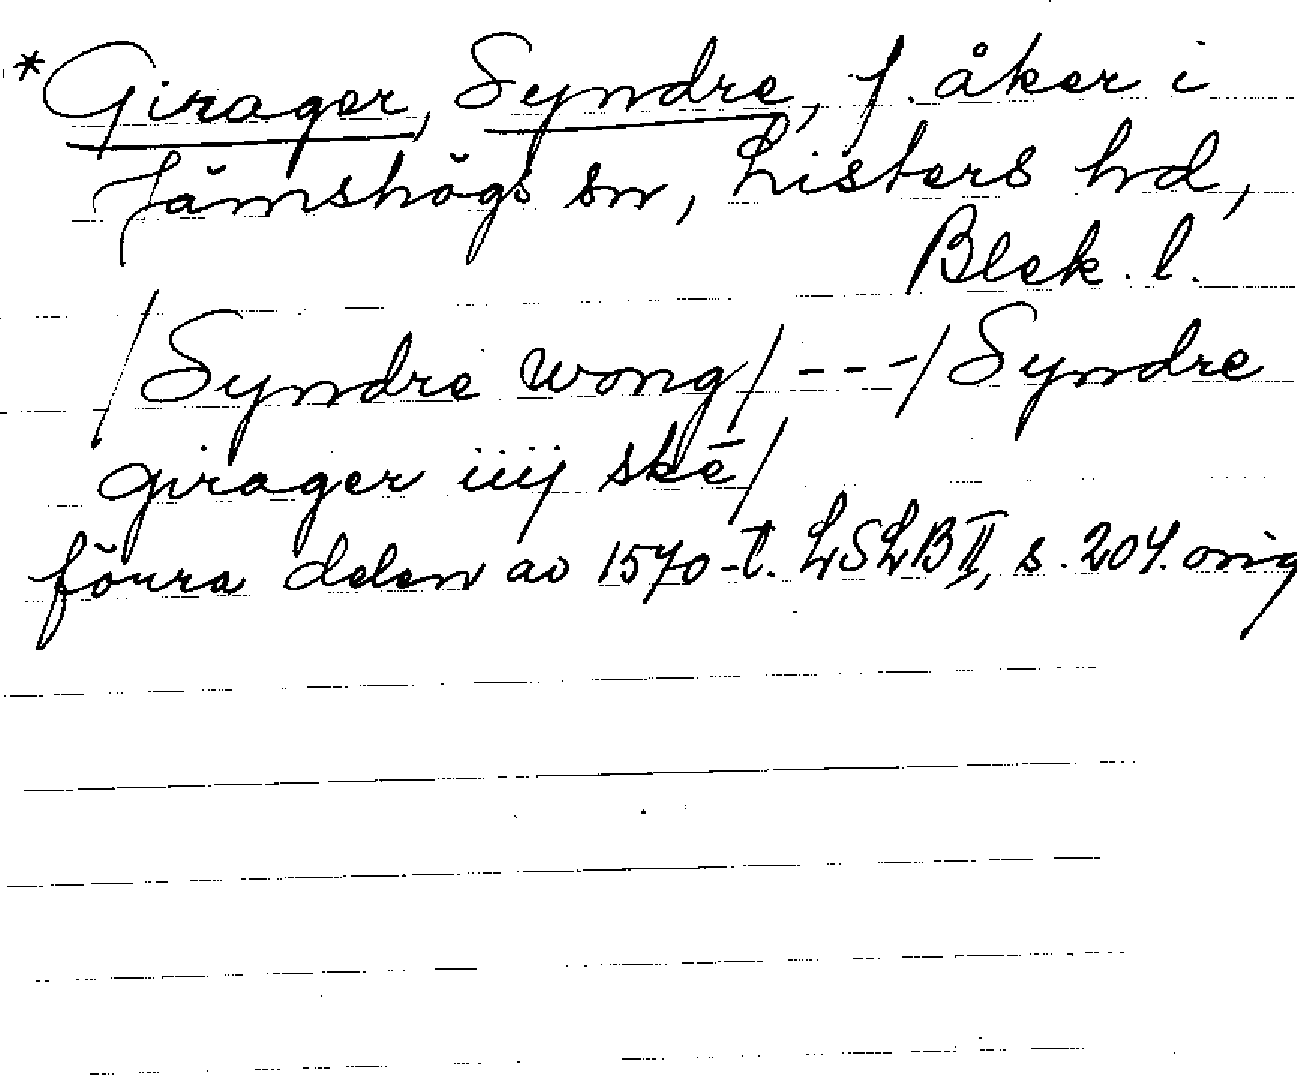 *Girager, Syndre, f. åker i
Jämshögs sn, Listers hd,
Blek. l.
/Syndre wong/ - - -/Syndre
girager iiij skē/
förra delen av 1570-t. LSLB II, s. 204. orig